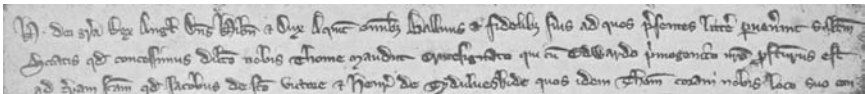 H. dei gra Rex Angl Dns Hibn & Dux Aquit omnibz Ballivis & fidelibz suis ad quos psentes littere pvenerint saltm
Sciatis qd concessimus dilco nobis Thome Mauduit Crucesignato qui cu Edwardo pmogenito nro pfcturus est
ad tram scam qd Jacobus de sco Victore & Henr de Tydulveshide quos idem Thom coram nobis loco suo con